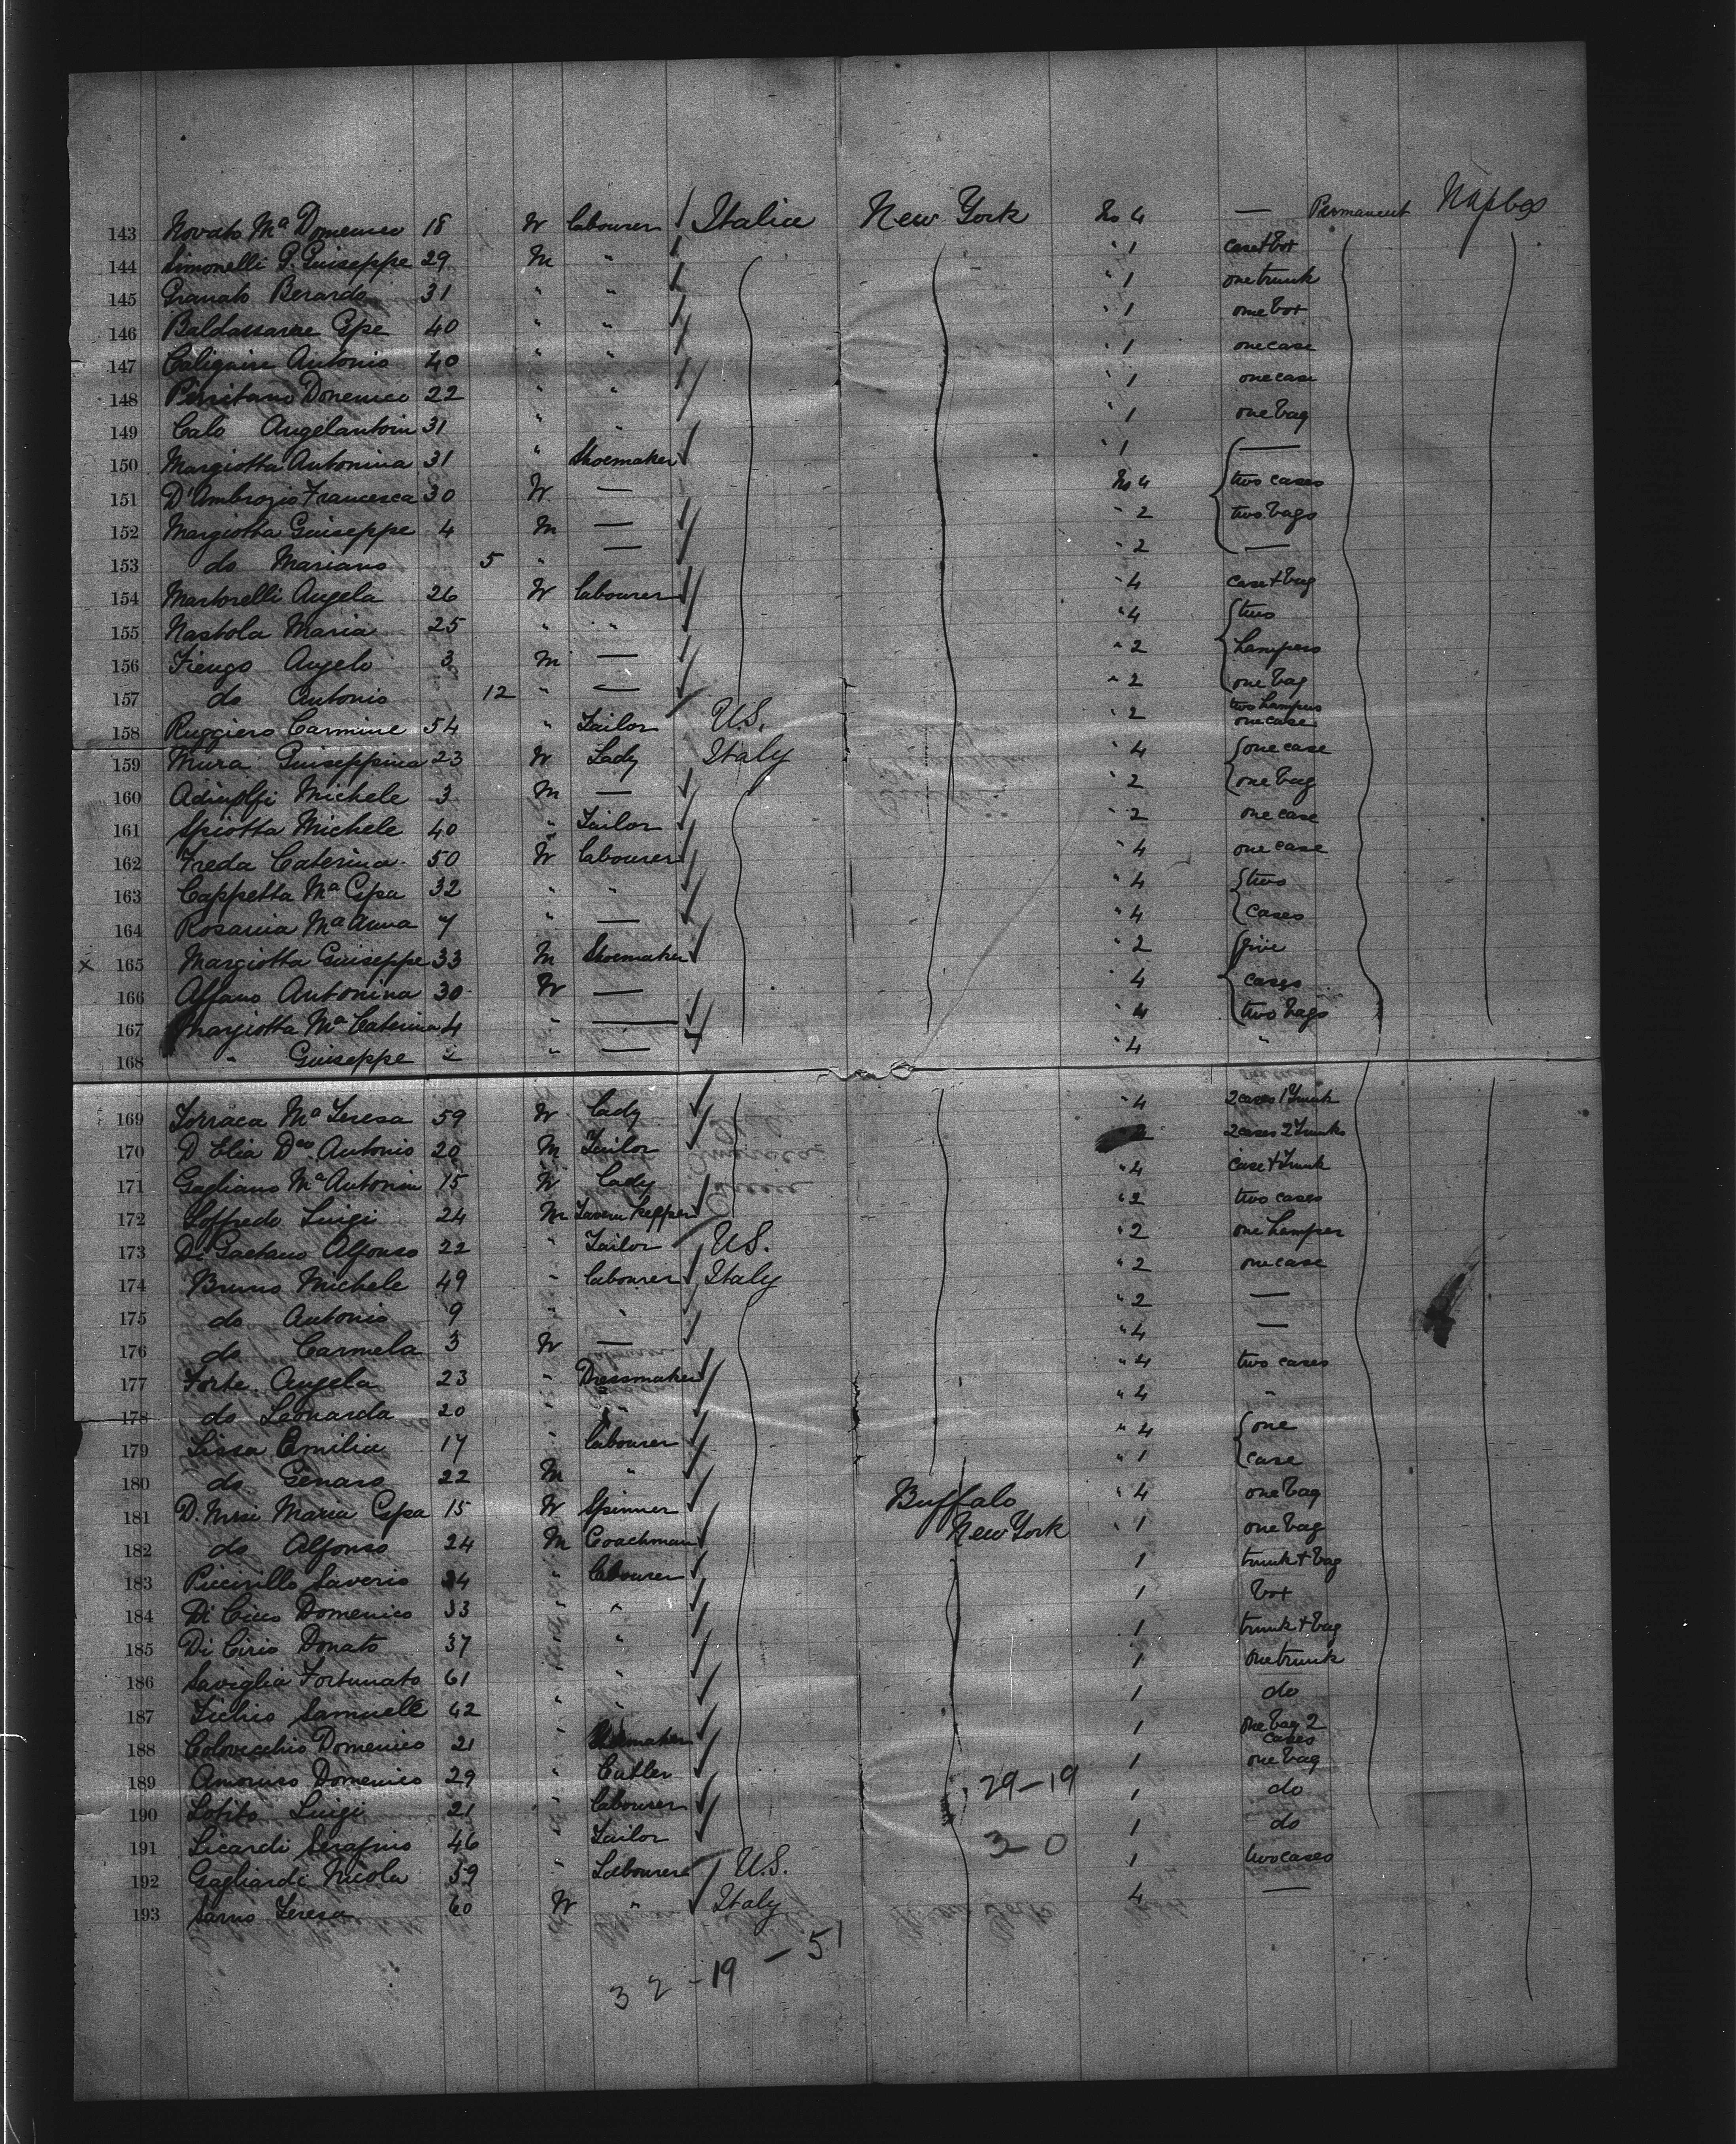 143 Novato Mª Domenico 18 W labourer Italia New York No 4 — Permanent Naples
144 Simonelli G. Guiseppe 29 M " " 1 case + box
145 Granato Berardo 31 " " " 1 one trunk
146 Baldassarre Gpe 40 " " " 1 one box
147 Caligiure Antonio 40 " " " 1 one case
148 Perritano Domenico 22 " " " 1 one case
149 Calo Angelantoin 31 " " " 1 one bag
150 Margiotta Antonina 31 " Shoemaker " 1 —
151 D'Ambrozio Francesca 30 W — No 4 two cases
152 Margiotta Guiseppe 4 M — " 2 two bags
153 do Mariano 5 " — " 2 —
154 Martorelli Angela 26 W labourer " 4 case + bag
155 Nastola Maria 25 " " " 4 two
156 Fiengo Angelo 3 M — " 2 hampers
157 do Antonio 12 " — " 2 one bag
158 Ruggiero Carmine 54 " Tailor U.S. " 2 two hampers one case
159 Mura Guiseppina 23 W Lady Italy " 4 one case
160 Adinolfi Michele 3 M — " 2 one bag
161 Spiotta Michele 40 " Tailor " 2 one case
162 Freda Caterina 50 W labourer " 4 one case
163 Cappetta Mª Gpa 32 " " " 4 two
164 Rosania Mª Anna 7 " — " 4 cases
x 165 Margiotta Guiseppe 33 M Shoemaker " 2 five
166 Affano Antonina 30 W — 4 cases
167 Margiotta Mª Caterina 4 " — " 4 two bags
168 " Guiseppe 2 " — " 4 "
169 Torraca Mª Teresa 59 W Lady " 4 2 cases 1 Trunk
170 D'Elia Dco Antonio 20 M Tailor 2 2 cases 2 Trunks
171 Gagliano Mª Antonin 15 W Lady " 4 case + Trunk
172 Loffredo Luigi 24 M Tavern Kepper " 2 two cases
173 Di Gaetano Alfonso 22 " Tailor U.S. " 2 one hamper
174 Bruno Michele 49 " labourer Italy " 2 one case
175 do Antonio 9 " " " 2 —
176 do Carmela 3 W — " 4 —
177 Forte Angela 23 " Dressmaker " 4 two cases
178 do Leonarda 20 " " " 4 "
179 Lissa Emilia 17 " labourer " 4 one
180 do Genaro 22 M " " 1 case
181 D. Maria Gpa 15 W Spinner Buffalo " 4 one bag
182 do Alfonso 24 M Coachman New York " 1 one bag
183 Piccirillo Saverio 24 " labourer 1 trunk + bag
184 Di Cicco Domenico 33 " " 1 box
185 Di Cirio Donato 37 " " 1 trunk + bag
186 Saviglia Fortunato 61 " " 1 one trunk
187 Samuele 42 " " 1 do
188 Colovecchio Domenico 21 " Shoemaker 1 one bag 2 cases
189 Amoruso Domenico 29 " Cutler 29-19 1 one bag
190 Lofito Luigi 21 " labourer 1 do
191 Licardi Serafino 46 " Tailor 3-0 1 do
192 Gagliardi Nicola 39 " Labourer U.S. 1 two cases
193 Sarno Teresa 60 W " Italy 4 —
32 - 19 - 51